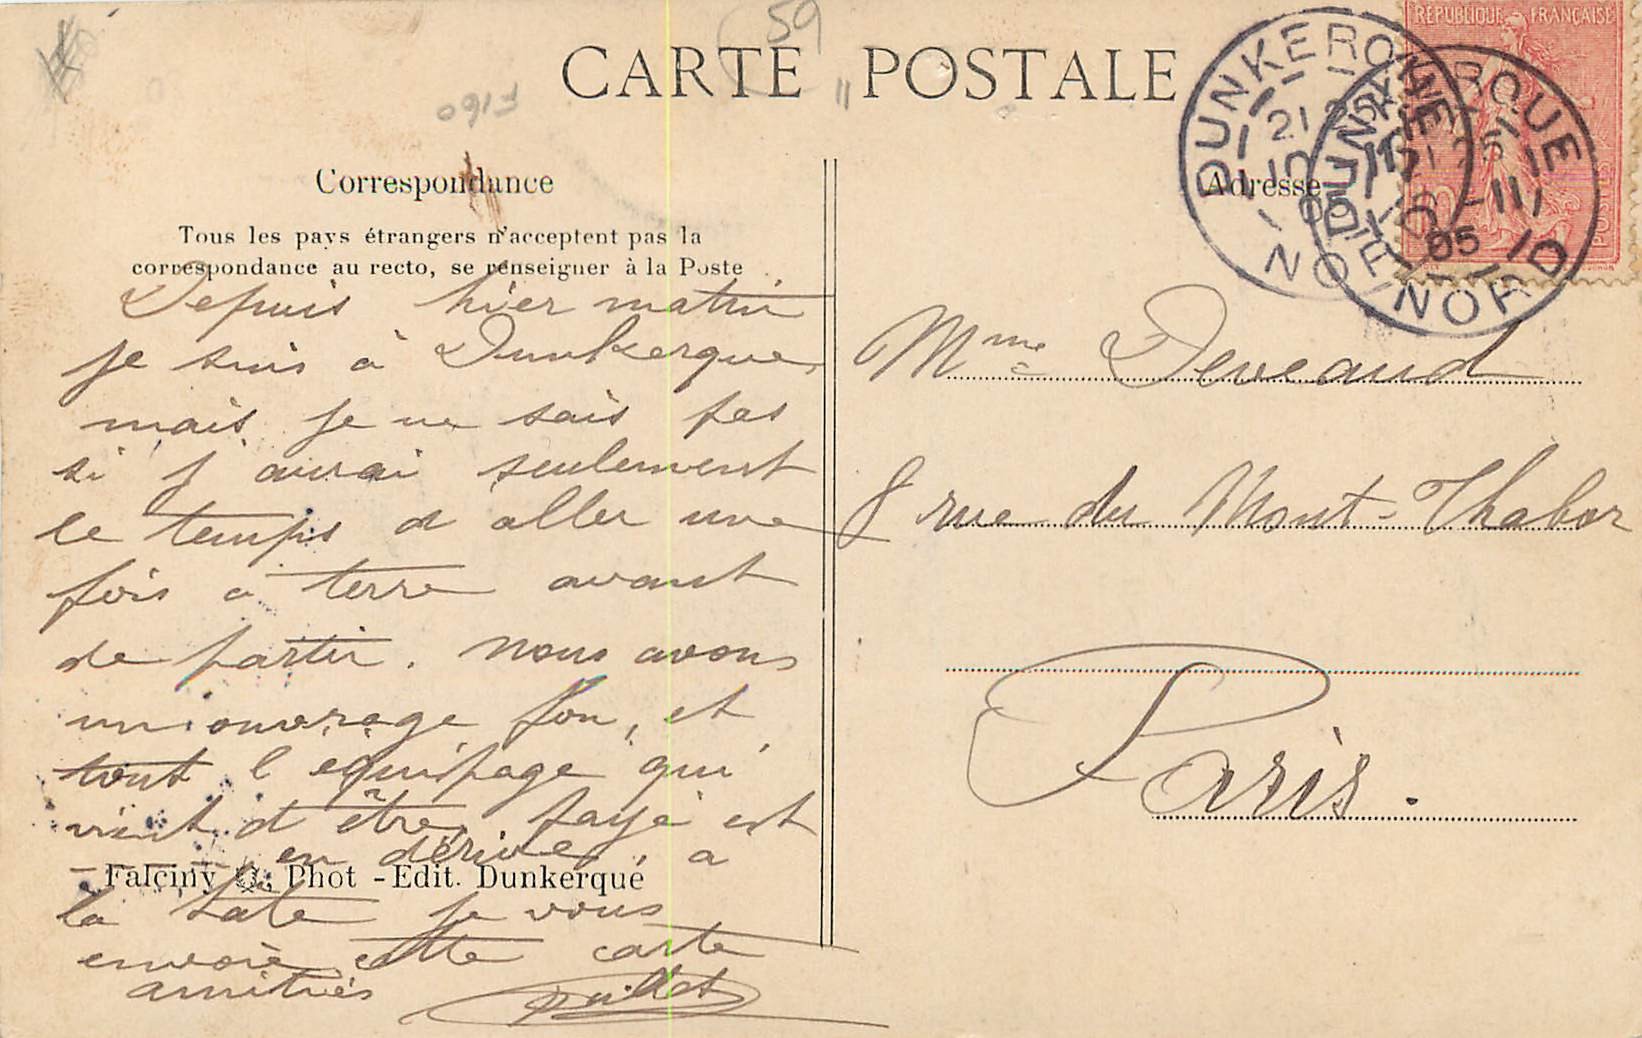 59
CARTE POSTALE
F160
Correspondance
Tous les pays étrangers n'acceptent pas la
correspondance au recto, se renseigner à la Poste
Depuis hier matin
je suis à Dunkerque,
mais je ne sais pas
si j aurai seulement
le temps d aller une
fois à terre avant
de partir. Nous avons
un ouvrage fou, et
tout l équipage qui
vient d être payé est
en dérive, a
Falçiny Phot - Edit. Dunkerque
la hate je vous
envoie cette carte
amitiés
Adresse
Mme Deveaud
8 rue du Mont-Thabor
Paris.
RÉPUBLIQUE FRANÇAISE
POSTES
DUNKERQUE
21 25
NORD
DUNKERQUE
21 25
05
NORD